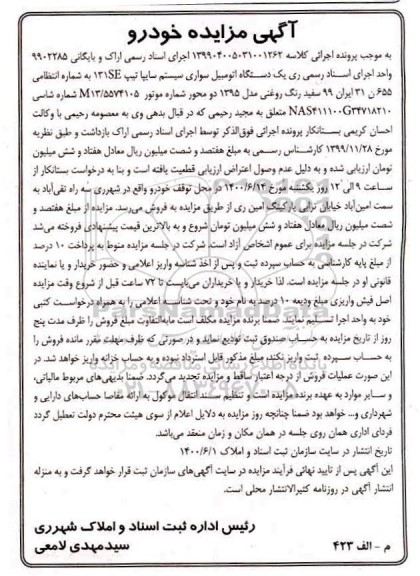 آگهی مزایده خودرو
به موجب پرونده اجرائی کلاسه ۱۳۹۹۰۴۰۰۵۰۳۱۰۰۱۲۶۲ اجرای اسناد رسمی اراک و بایگانی ۹۹۰۲۲۸۵
واحد اجرای اسناد رسمی ری یک دستگاه اتومبیل سواری سیستم سایپا تیپ ۱۳۱SE به شماره انتظامی
۶۵۵ ن ۳۱ ایران ۹۹ سفید رنگ روغنی مدل ۱۳۹۵ دو محور شماره موتور M۱۳/۵۵۷۴۱۰۵ شماره شاسی
NAS۴۱۱۱۰۰G۳۴۷۱۸۲۱۰ متعلق به مجید رحیمی که در قبال بدهی وی به معصومه رحیمی با وکالت
احسان کریمی بستانکار پرونده اجرائی فوق‌الذکر توسط اجرای اسناد رسمی اراک بازداشت و طبق نظریه
مورخ ۱۳۹۹/۱۱/۲۸ کارشناس رسمی به مبلغ هفتصد و شصت میلیون ریال معادل هفتاد و شش میلیون
تومان ارزیابی شده و به دلیل عدم وصول اعتراض ارزیابی قطعیت یافته است و بنا به درخواست بستانکار از
ساعت ۹ الی ۱۲ روز یکشنبه مورخ ۱۴۰۰/۶/۱۴ در محل توقف خودرو واقع در شهرری سه راه تقی‌آباد به
سمت امین‌آباد خیابان ترابی پارکینگ امین ری از طریق مزایده به فروش می‌رسد. مزایده از مبلغ هفتصد و
شصت میلیون ریال معادل هفتاد و شش میلیون تومان شروع و به بالاترین قیمت پیشنهادی فروخته می‌شد
شرکت در جلسه مزایده برای عموم اشخاص آزاد است. شرکت در جلسه مزایده منوط به پرداخت ۱۰ درصد
از مبلغ پایه کارشناسی به حساب سپرده ثبت و پس از اخذ شناسه واریز اعلامی و حضور خریدار و یا نماینده
قانونی او در جلسه مزایده است. لذا خریدار و یا خریداران می‌بایست تا ۷۲ ساعت قبل از شروع وقت مزایده
اصل فیش واریزی مبلغ ودیعه ۱۰ درصد به نام خود و تحت شناسه اعلامی را به همراه درخواست کتبی
خود به واحد اجرا تسلیم نمایند. ضمنا برنده مزایده مکلف است مابه‌التفاوت مبلغ فروش را ظرف مدت پنج
روز از تاریخ مزایده به حساب صندوق ثبت تودیع نماید و در صورتی که ظرف مهلت مقرر مانده فروش را
به حساب سپرده ثبت واریز نکند، مبلغ مذکور قابل استرداد نبوده و به حساب خزانه واریز خواهد شد. در
این صورت عملیات فروش از درجه اعتبار ساقط و مزایده تجدید می‌گردد. ضمنا بدیهی‌های مربوط مالیاتی،
و سایر موارد به عهده برنده مزایده است و تنظیم سند انتقال موکول به ارائه مفاصا حساب‌های دارایی و
شهرداری و... خواهد بود ضمنا چنانچه روز مزایده به دلایل اعلام از سوی هیئت محترم دولت تعطیل گردد
فردای اداری همان روی جلسه در همان مکان و زمان منعقد می‌باشد.
تاریخ انتشار در سایت سازمان ثبت اسناد و املاک ۱۴۰۰/۶/۱
این آگهی پس از تایید نهائی فرآیند مزایده در سایت آگهی‌های سازمان ثبت قرار خواهد گرفت و به منزله
انتشار آگهی در روزنامه کثیرالانتشار محلی است.
رئیس اداره ثبت اسناد و املاک شهرری
سیدمهدی لامعی
م - الف ۴۲۳